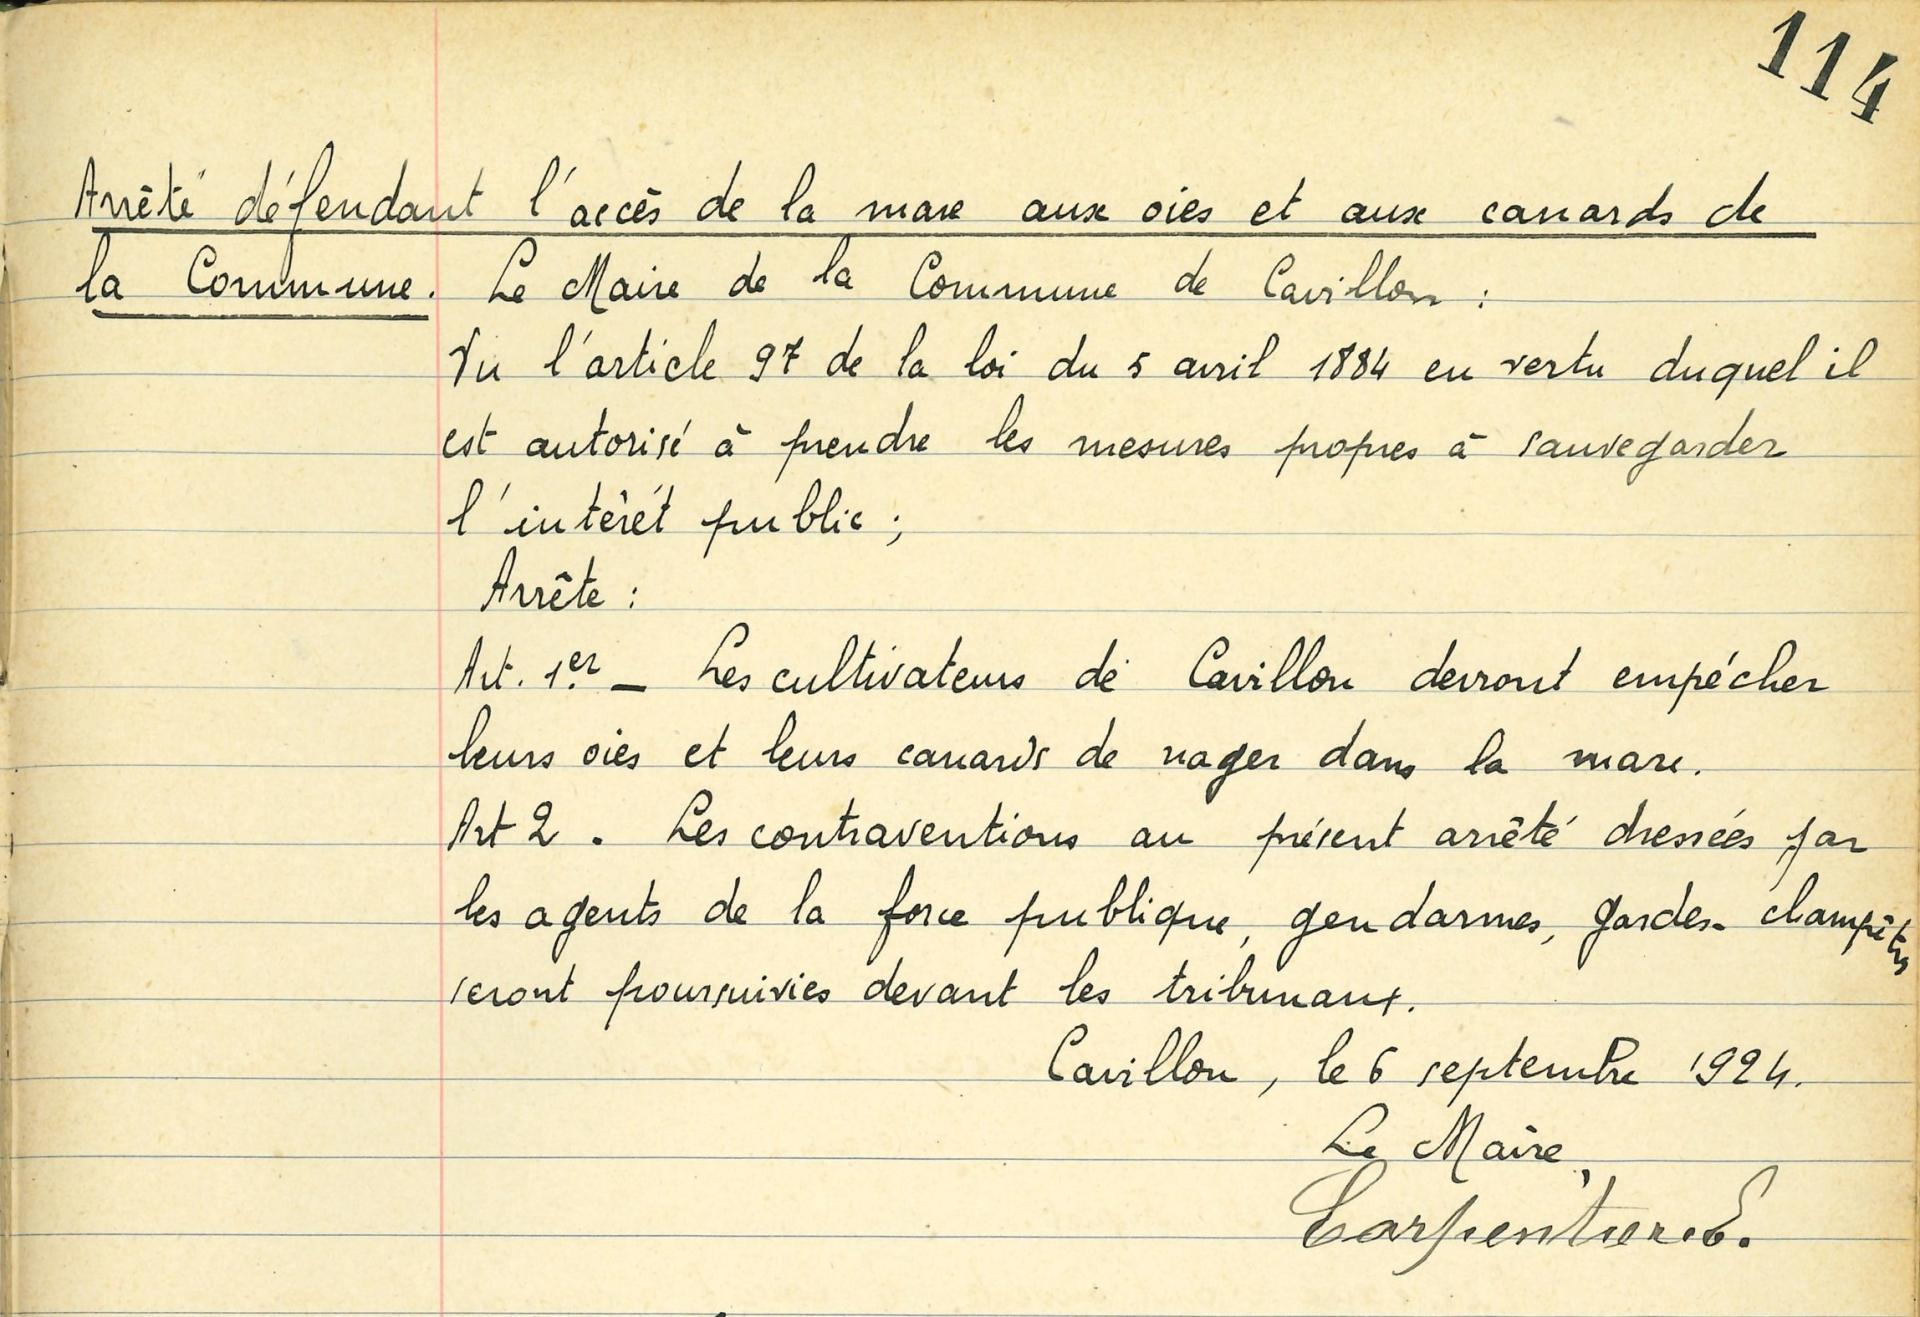 114
Arrêté défendant l'accès de la mare aux oies et aux canards de
la Commune. Le Maire de la Commune de Cavillon :
Vu l'article 97 de la loi du 5 avril 1884 en vertu duquel il
est autorisé à prendre les mesures propres à sauvegarder
l'intérêt public ;
Arrête :
Art. 1er – Les cultivateurs de Cavillon devront empêcher
leurs oies et leurs canards de nager dans la mare.
Art 2 . Les contraventions au présent arrêté dressées par
les agents de la force publique, gendarmes, gardes-champêtres
seront poursuivies devant les tribunaux.
Cavillon, le 6 septembre 1924.
Le Maire,
Carpentier E.